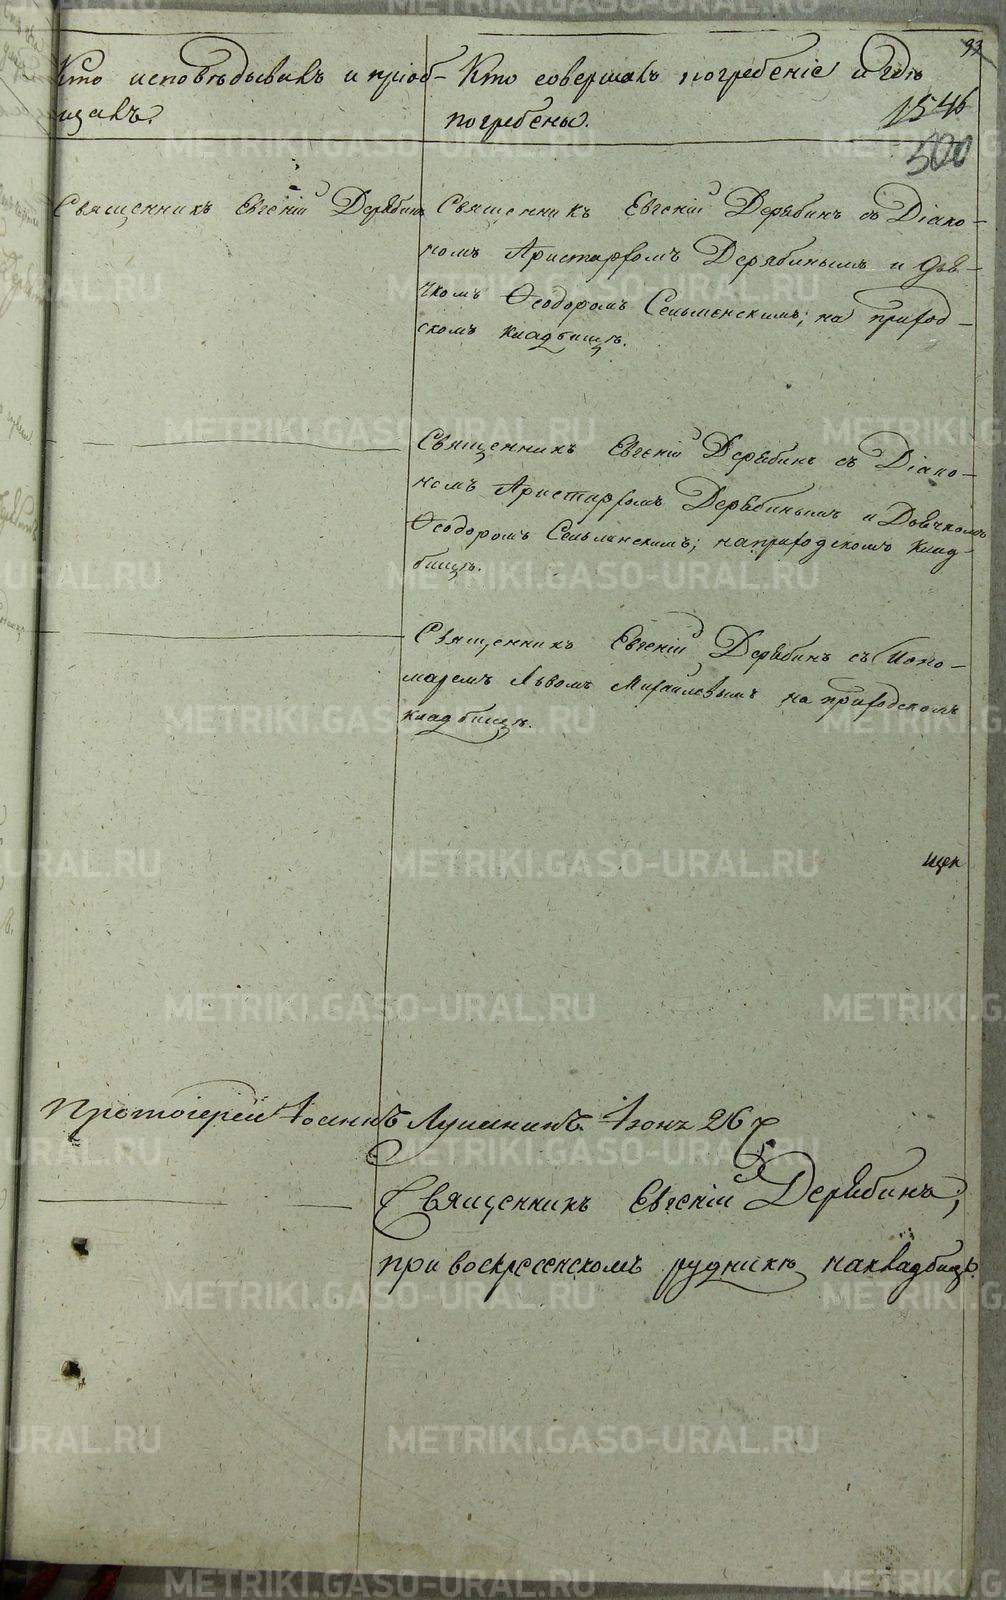 93
Кто исповѣдывалъ и пріоб-
щалъ.
Кто совершалъ погребеніе и гдѣ
погребены.
1546
500
Священникъ Евгеній Дерябинъ
Священникъ Евгеній Дерябинъ съ Діако-
номъ Аристархомъ Дерябинымъ и Дьяч-
комъ Ѳеодоромъ Сельменскимъ; на приход-
скомъ кладбищѣ.
Священникъ Евгеній Дерябинъ съ Діако-
номъ Аристархомъ Дерябинымъ и Дьячкомъ
Ѳеодоромъ Сельменскимъ; на приходскомъ клад-
бищѣ.
Священникъ Евгеній Дерябинъ съ Поно-
маремъ Львомъ Михайловымъ на приходскомъ
кладбищѣ.
щен
Протоіерей Іоаннъ 26
Священникъ Евгеній Дерябинъ;
при воскресенскомъ рудникѣ на кладбищѣ.
METRIKI.GASO-URAL.RU